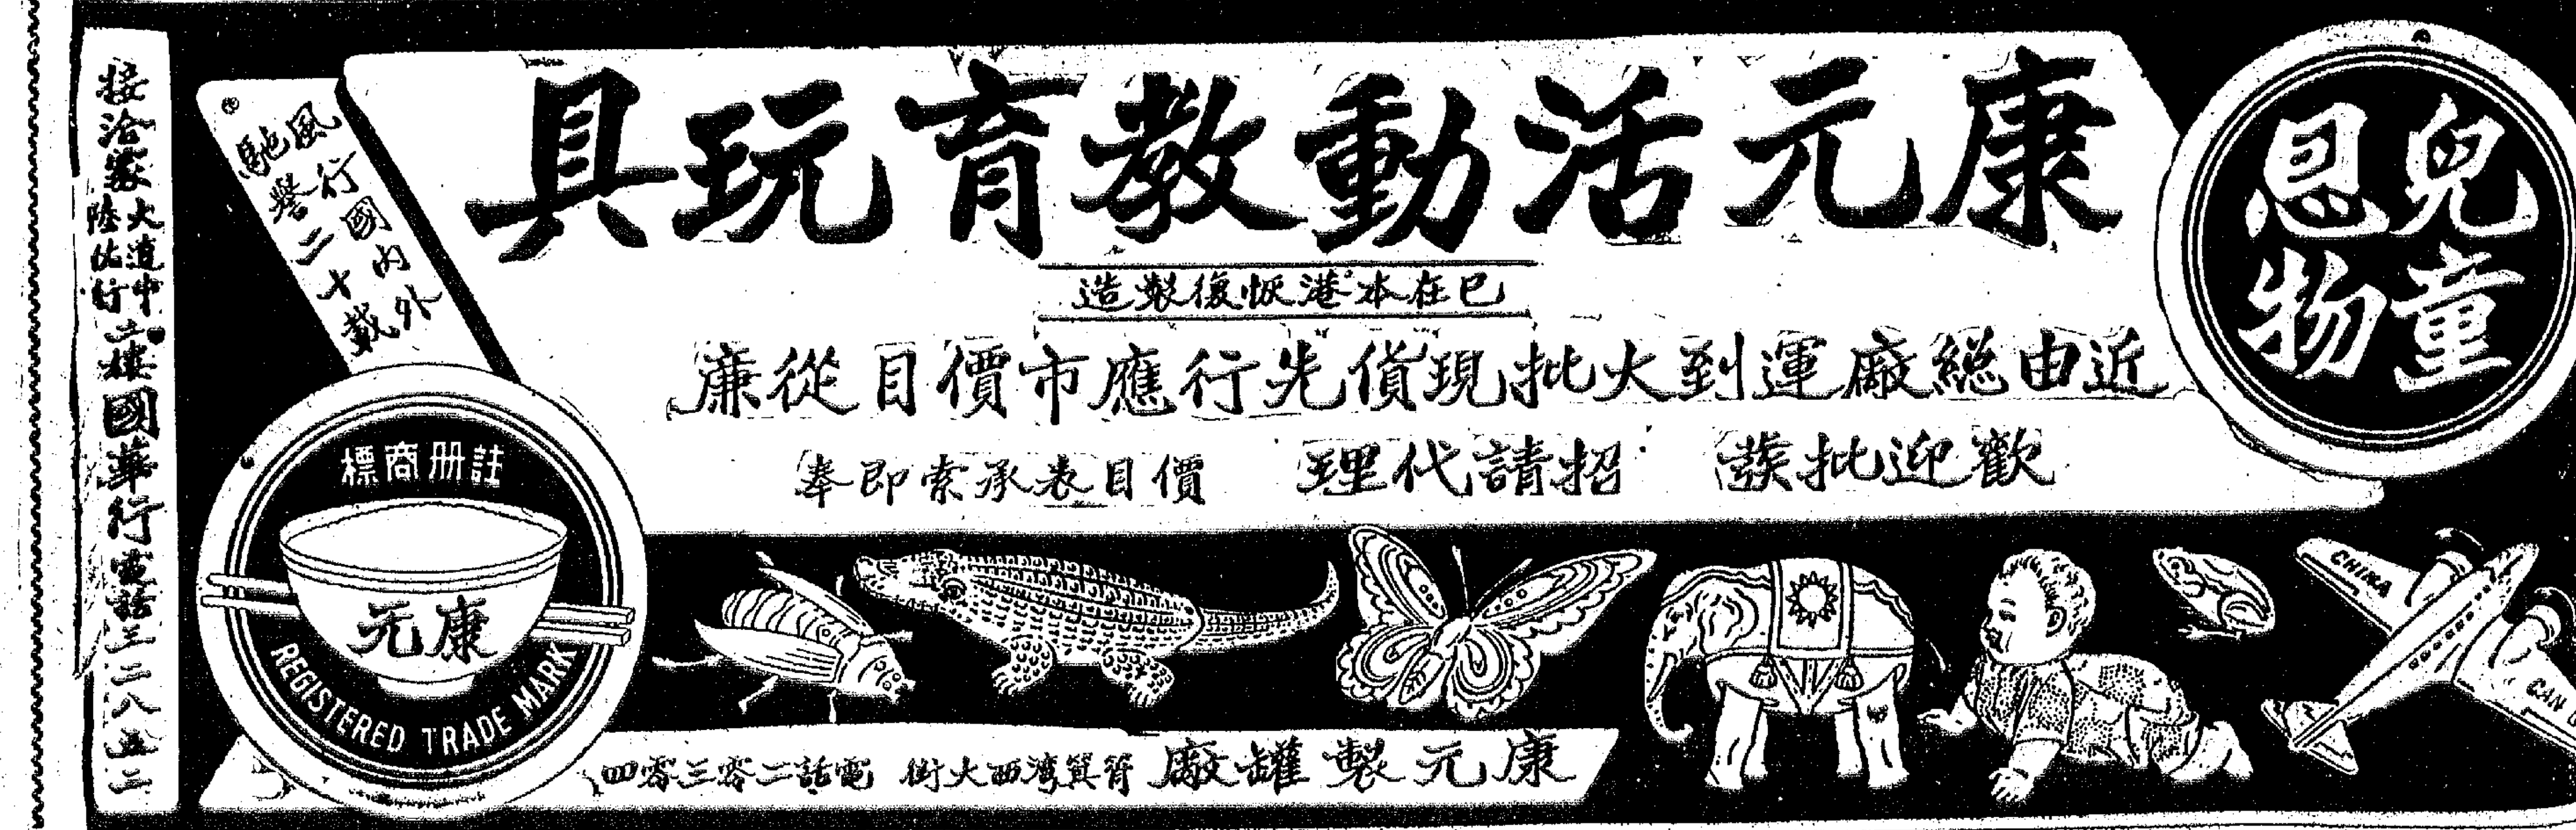 兒童
恩物
康元活動教育玩具
已在本港恢復製造
近由総廠運到大批現貨先行應市價目從廉
歡迎批發 招請代理 價目表承索即奉
風行國內外
馳譽二十載
註册商標
康元
REGISTERED TRADE MARK
CHINA
康元製罐廠 筲箕灣西大街 電話二零三零四
接洽處
大道中
陸佑行
樓國華行電話三二八五二